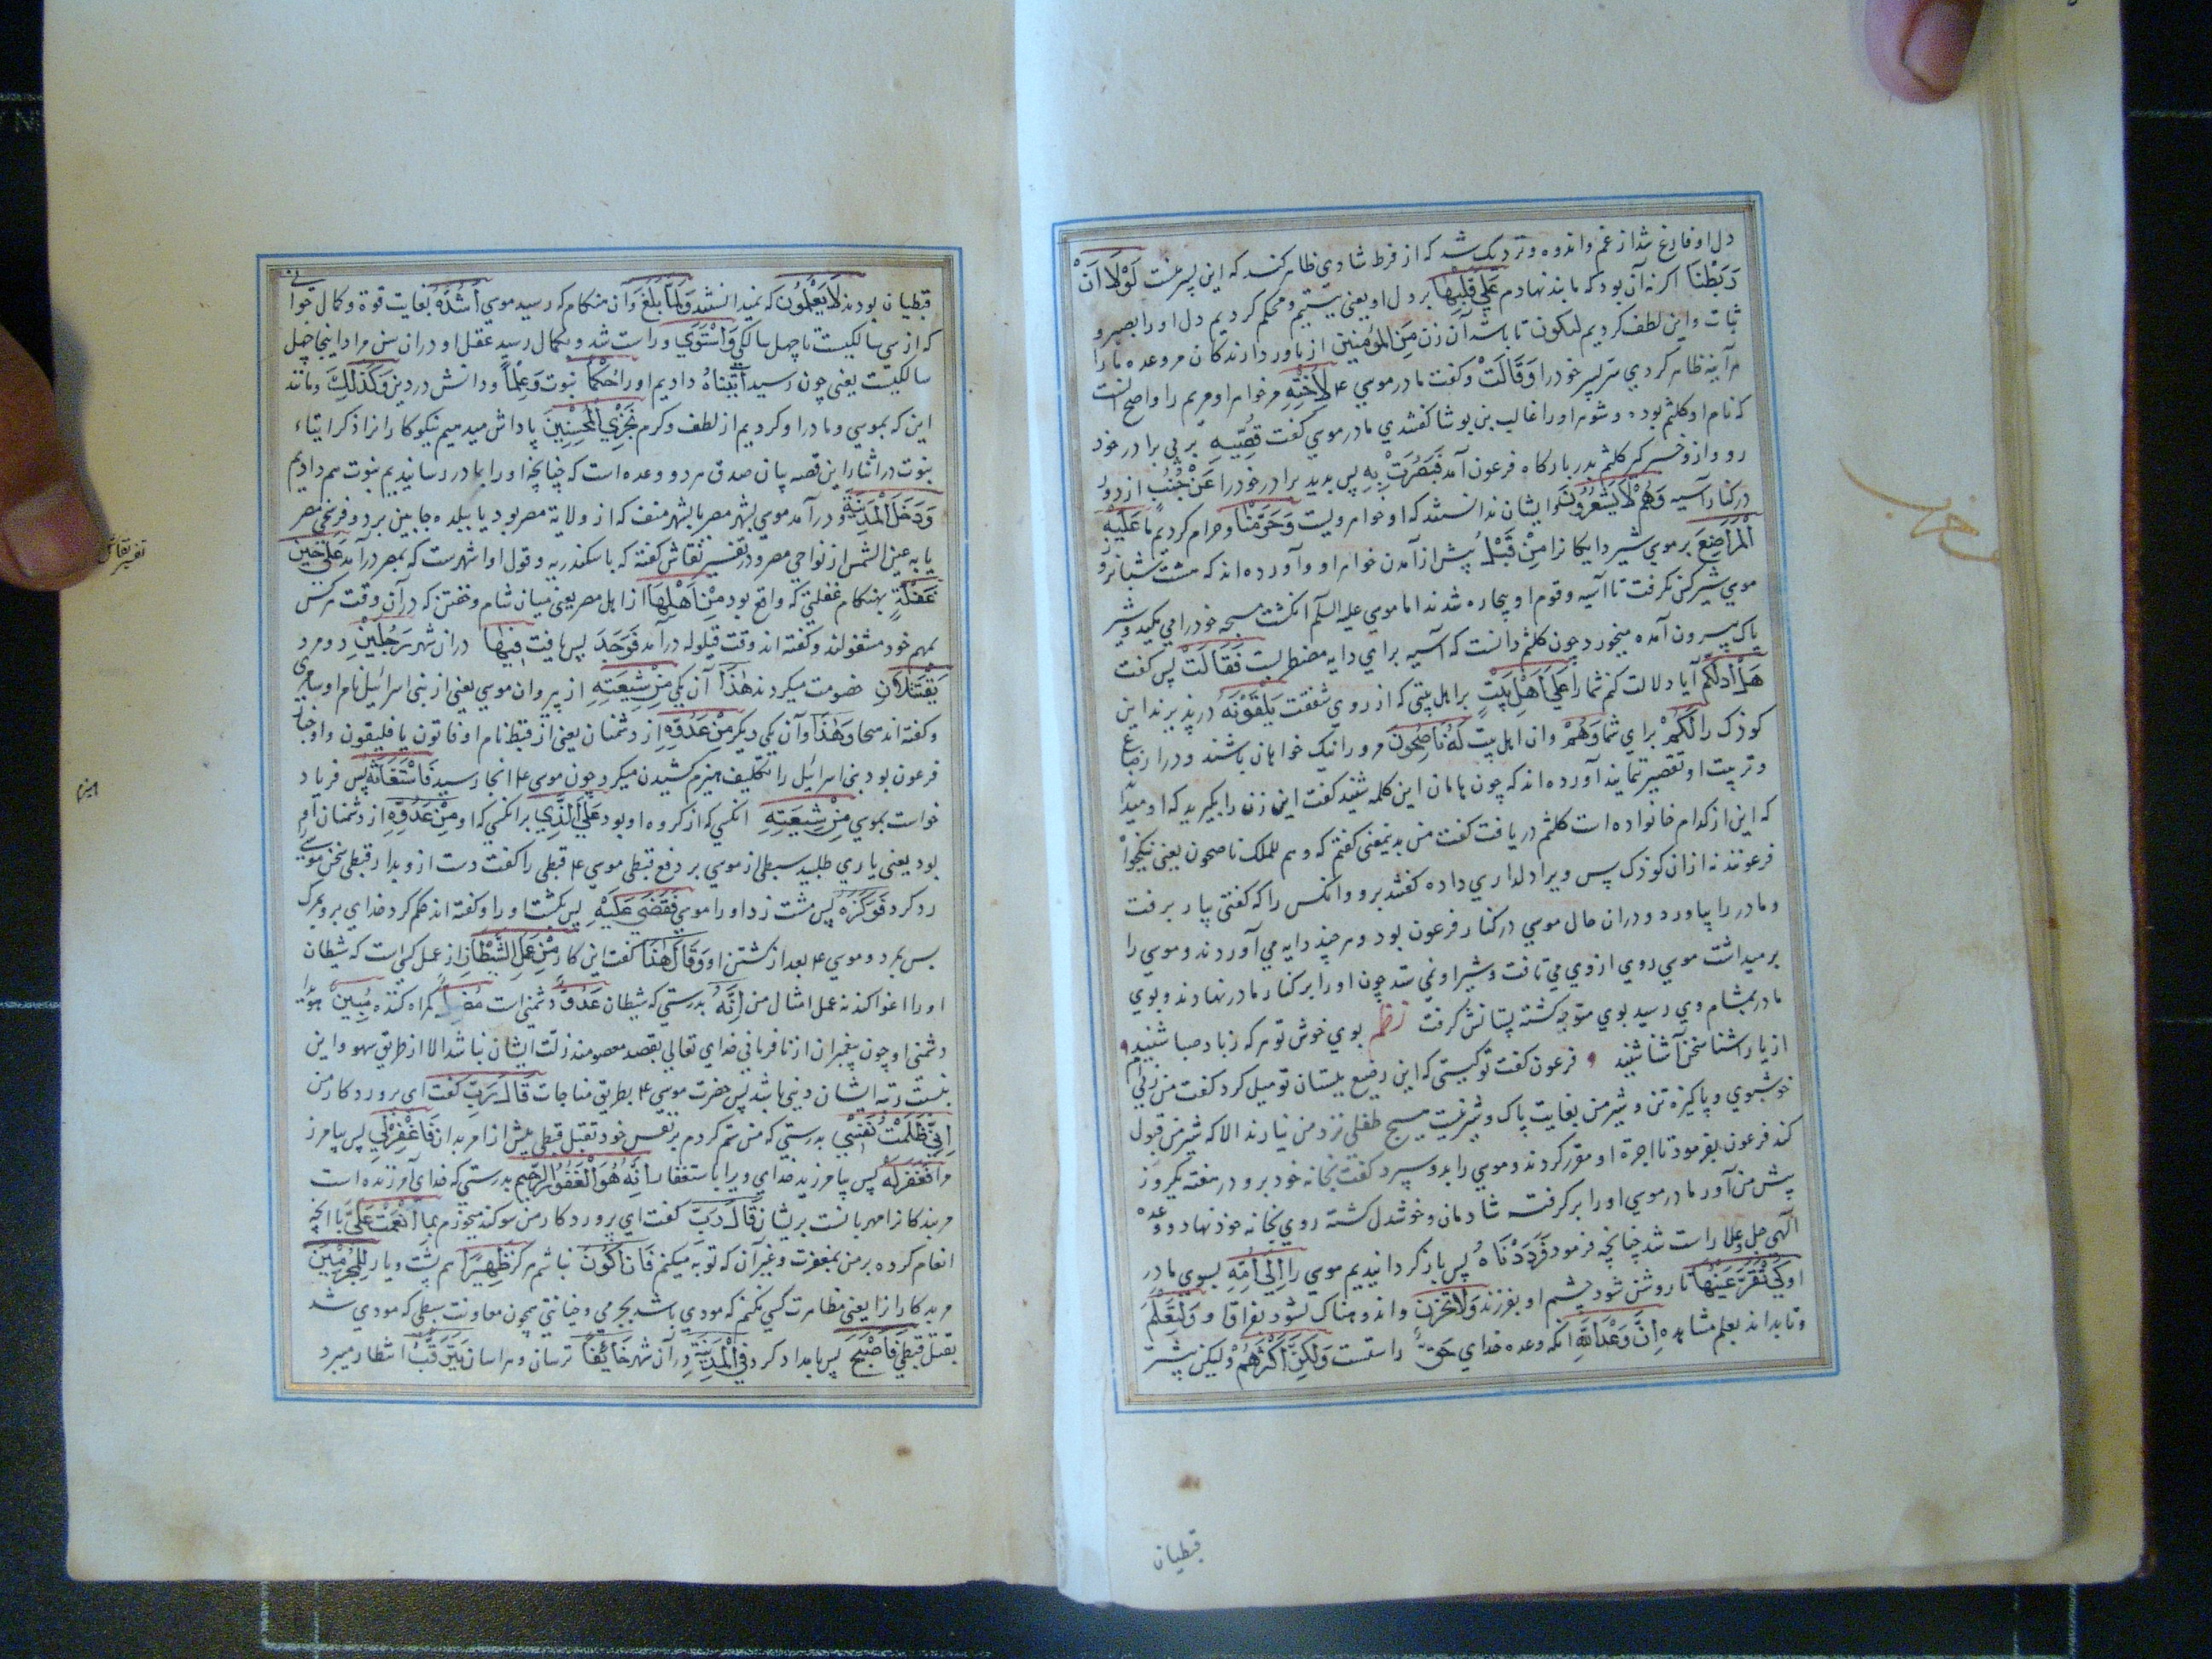 دل او فارغ شد از غم و اندوه و نزدیک شد که از فرط شادی ظاهر کند که این پسر منست لَوْلَا اَنْ
رَبَطْنَا اکر نه آن بود که ما بند نهادم عَلَی قَلْبِهَا بر دل او یعنی بستیم و محکم کردیم دل او را بصبر و
ثبات و این لطف کردیم لتکون تا باشد آن زن مِنَ المُؤمِنین از باور دارندکان مر وعده ما را
هر آینه ظاهر کردی سر پسر خود را وَقَالَتْ و کفت مادر موسی ع لِاُخْتِهِ مر خواهر او مریم را و اصح آنست
که نام او کلثم بوده و شوهر او را غالب بن یوشا کفتندی مادر موسی کفت قُصِّیهِ بر پی برادر خود
رو و ازو خبر کیر کلثم بدر بارکاه فرعون آمد فَبَصُرَتْ بِهِ پس بدید برادر خود را عَنْ جُنُبٍ از دور
در کنار آسیه وَهُمْ لَا یَشْعُرُونَ و ایشان ندانستند که او خواهر ویست وَحَرَّمْنَا و حرام کردیم ما عَلَیْهِ
الْمَرَاضِعَ بر موسی شیر دایکانرا مِنْ قَبْلُ پیش از آمدن خواهر او و آورده اند که هشت شبانروز
موسی شیر کس نکرفت تا آسیه و قوم او بیچاره شدند اما موسی علیه السلم انکشت مسبحه خود را می مکید و شیر
پاک بیرون آمده میخورد چون کلثم دانست که آسیه برای دایه مضطر بست فَقَالَتْ پس کفت
هَلْ اَدُلُّکُمْ آیا دلالت کنم شما را عَلَی اَهْلِ بَیْتٍ بر اهل بیتی که از روی شفقت یَکْفُلُونَهُ در پذیرند این
کوذک را لَکُمْ برای شما وَهُمْ و ان اهل بیت لَهُ نَاصِحُون مر او را نیک خواهان باشند و در ارضاع
و تربیت او تقصیر ننمایند آورده اند که چون هامان این کلمه شنید کفت این زن را بکیرید که او میداند
که این از کدام خانواده است کلثم دریافت کفت من بدین معنی کفتم که و هم للملک ناصحون یعنی نیکخواه
فرعونند نه ازان کوذک پس ویرا دلداری داده کفتند برو و انکس را که کفتی بیار برفت
و مادر را بیاورد و دران حال موسی در کنار فرعون بود و هر چند دایه می آوردند و موسی را
بر میداشت موسی روی از وی می تافت و شیر او نمی ستد چون او را بر کنار مادر نهادند و بوی
مادر بمشام وی رسید بوی متوجه کشته پستانش کرفت نظم بوی خوش تو هر که ز باد صبا شنید
از یار اشنا سخن آشنا شنید فرعون کفت تو کیستی که این رضیع بپستان تو میل کرد کفت من زنی ام
خوشبوی و پاکیزه تن و شیر من بغایت پاک و شیرینست هیچ طفلی نزد من نیارند الا که شیر من قبول
کند فرعون بفرمود تا اجرة او مقرر کردند و موسی را بدو سپرد کفت بخانه خود برو در هفته یکروز
پیش من آور مادر موسی او را بر کرفت شادمان و خوشدل کشته روی بخانه خود نهاد و وعده
الهی جل وعلا راست شد چنانچه فرمود فَرَدَدْنَاهُ پس باز کردانیدیم موسی را اِلَی اُمِّهِ بسوی مادر
او کَیْ تَقَرَّ عَیْنُهَا تا روشن شود چشم او بفرزند وَلَا تَحْزَنَ و اندوهناک نشود بفراق او وَلِتَعْلَمَ
و تا بداند بعلم مشاهده اَنَّ وَعْدَ اللهِ انکه وعده خدای حَقٌّ راستست وَلَکِنَّ اَکْثَرَهُمْ و لیکن بیشتر
قبطیان
قبطیان بودند لَا یَعْلَمُون که نمیدانستند وَلَمَّا بَلَغَ و آن هنکام که رسید موسی اَشُدَّهُ بغایت قوة و کمال قوا
که از سی سالکیست تا چهل سالکی وَاسْتَوَی و راست شد و بکمال رسید عقل او دران سن مراد اینجا چهل
سالکیست یعنی چون رسید آتَیْنَاهُ دادیم او را حُکْمًا نبوت وَعِلْمًا و دانش در دین وَکَذَلِکَ و مانند
این که بموسی و مادر او کردیم از لطف و کرم نَجْزِی الْمُحْسِنِینَ پاداش میدهیم نیکوکارانرا ذکر ایتاء
نبوت در اثنا راین قصه بیان صدق هر دو وعده است که چنانچه او را بمادر رسانیدیم نبوت هم دادیم
وَدَخَلَ الْمَدِینَةَ و در آمد موسی بشهر مصر یا بشهر منف که از ولایة مصر بود یا ببلده جابین بر دو فرسخی مصر
یا به عین الشمس از نواحی مصر و در تفسیر نقاش کفته که باسکندریه و قول او اشهرست که بمصر درآمد عَلَی حِینِ
غَفْلَةٍ بهنکام غفلتی که واقع بود مِنْ اَهْلِهَا از اهل مصر یعنی میان شام و خفتن که در آن وقت هر کس
بمهم خود مشغولند و کفته اند وقت قیلوله در آمد فَوَجَدَ پس یافت فِیهَا دران شهر رَجُلَیْنِ دو مرد
یَقْتَتِلَانِ خصومت میکردند هَذَا آن یکی مِنْ شِیعَتِهِ از پیروان موسی یعنی از بنی اسرائیل نام او سامری
و کفته اند سحا وَهَذَا و آن یکی دیکر مِنْ عَدُوِّهِ از دشمنان یعنی از قبط نام او فاتون یا فلیقون و او خباز
فرعون بود بنی اسرائیل را تکلیف هیزم کشیدن میکرد چون موسی ع انجا رسید فَاسْتَغَاثَهُ پس فریاد
خواست بموسی مِنْ شِیعَتِهِ انکسی که از کروه او بود عَلَی الَّذِی بر انکسی که او مِنْ عَدُوِّهِ از دشمنان او
بود یعنی یاری طلبید سبطی از موسی بر دفع قبطی موسی ع قبطی را کفت دست ازو بدار قبطی سخن موسی
رد کرد فَوَکَزَهُ پس مشت زد او را موسی فَقَضَی عَلَیْهِ پس بکشت او را و کفته اند حکم کرد خدای برو بمرک
پس بمرد و موسی ع بعد از کشتن او وَقَالَ هَذَا کفت این کار مِنْ عَمَلِ الشَّیْطَانِ از عمل کسی است که شیطان
او را اغوا کند نه عمل امثال من اِنَّهُ بدرستی که شیطان عَدُوٌّ دشمنی است مُضِلٌّ کمراه کننده مُبِینٌ هویدا
دشمنی او چون پیغمبران از نافرمانی خدای تعالی بقصد معصومند زلت ایشان نباشد الا از طریق سهو و این
نسبت رتبه ایشان دینی باشد پس حضرت موسی ع بطریق مناجات قَالَ رَبِّ کفت ای پروردکار من
اِنِّی ظَلَمْتُ نَفْسِی بدرستی که من ستم کردم بر نفس خود بقتل قبطی پیش از امر بدان فَاغْفِرْلِی پس بیامرز
مرا فَغَفَرَلَهُ پس بیامرزید خدای ویرا باستغفار اِنَّهُ هُوَ الْغَفُورُ الرَّحِیمُ بدرستی که خدای آمرزنده است
مر بندکانرا مهربانست بریشان قَالَ رَبِّ کفت ای پروردکار من سوکند میخورم بِمَا اَنْعَمْتَ عَلَیَّ با انچه
انعام کرده بر من بمغفرت و غیر آن که توبه میکنم فَلَنْ اَکُونَ نباشم هرکز ظَهِیرًا هم پشت و یار لِلْمُجْرِمِینَ
مر بدکارانرا یعنی مظاهرت کسی نکنم که مودی باشد بجرمی و خیانتی همچون معاونت سبطی که مودی شد
بقتل قبطی فَاَصْبَحَ پس بامداد کرد فِی الْمَدِینَةِ در آن شهر خَائِفًا ترسان و هراسان یَتَرَقَّبُ انتظار میبرد
تفسیر نقاش